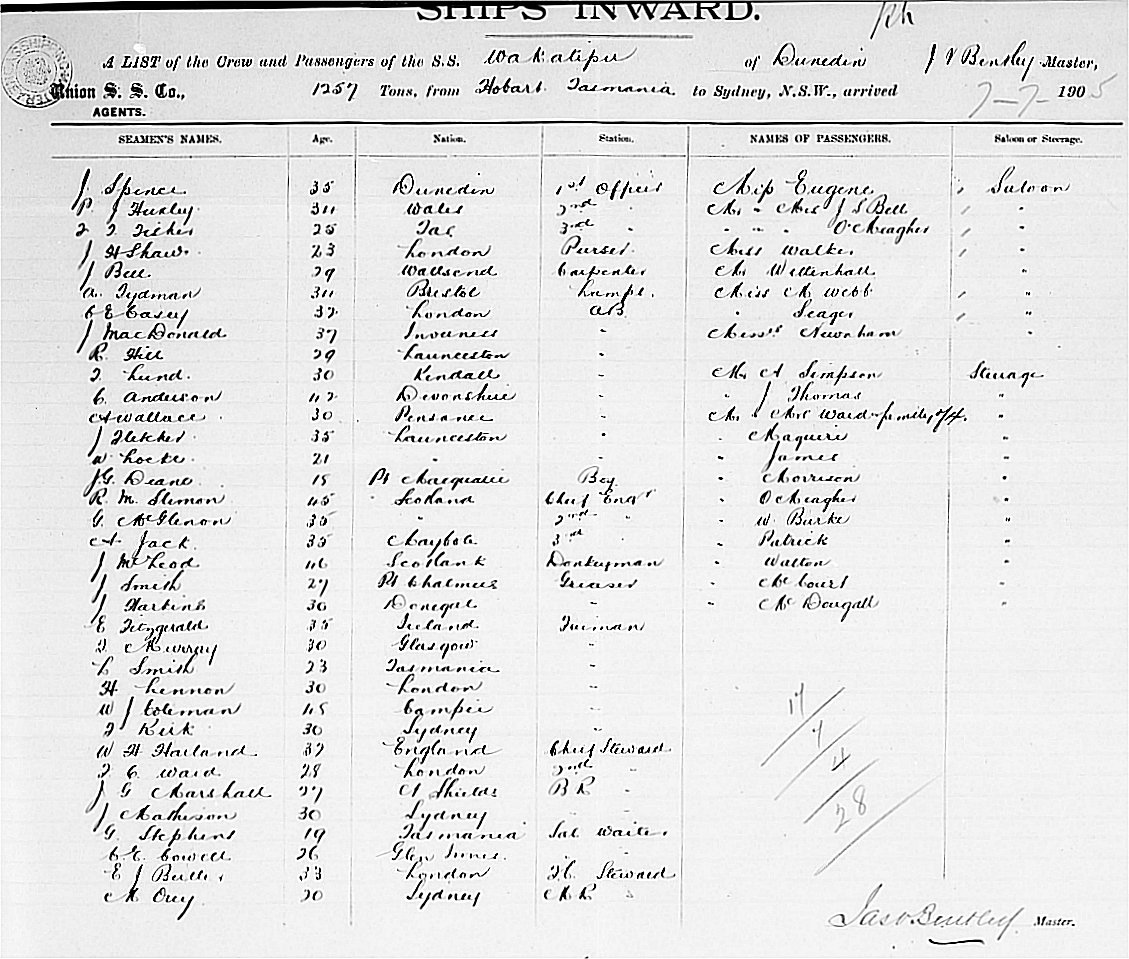 SHIPS INWARD.
A LIST of the Crew and Passengers of the S.S. Wakatipu of Dunedin J V Bentley Master,
Union S. S. Co., 1257 Tons, from Hobart Tasmania to Sydney, N.S.W., arrived 7-7-1905
AGENTS.
SEAMEN'S NAMES. Age. Nation. Station. NAMES OF PASSENGERS. Saloon or Steerage.
J Spence 35 Dunedin 1st Officer Miss Eugene " Saloon
P. J Huxley 34 Wales 2nd " Mr " Mrs J S Bell " "
F F Fisher 25 Tas 3rd " " " " O'Meagher " "
J H Shaw 23 London Purser Miss Walker " "
J Bell 29 Wallsend Carpenter Mr Wettenhall "
A. Tydman 34 Bristol Lamps. Miss M Webb " "
C E Casey 32 London AB " Seager " "
J MacDonald 37 Inverness " Newnham "
R. Hill 29 Launceston "
F. Lund. 30 Kendall " Mr A Simpson Steerage
C. Anderson 42 Devonshire " " J Thomas "
A Wallace 30 Pensance " Mr & Mrs Ward family, 4. "
J Fletcher 35 Launceston " " Maguire "
W Locke 21 " " " James "
J.G. Deane 18 Pt Macquarie Boy " Morrison "
R. M. Slimon 45 Scotland Chief Engr " O'Meagher "
G. McGlenon 35 " 2nd " " W Burke "
A Jack. 35 Maybole 3rd " Patrick "
J McLeod 46 Donkeyman " Walton "
J Smith 27 Pt Chalmers Greaser " McCourt "
J Harkins 30 Donegal " " McDougall "
E Fitzgerald 35 Ireland Fireman
F. Murray 30 Glasgow "
L Smith 23 Tasmania "
H Lennon 30 London "
W J Coleman 45 "
F Kirk 30 Sydney "
W H Harland 32 England Chief Steward
F C Ward 28 London 2nd "
J G Marshall 27 N Shields B R "
J Matheson 30 Sydney "
G. Stephens 19 Tasmania Sal Waiter
C E. Cowell 26 Glen Innes. "
E J Butler 33 London F.C. Steward
M Orey 20 Sydney M R "
17
7
4
28
Jas V Bentley Master.